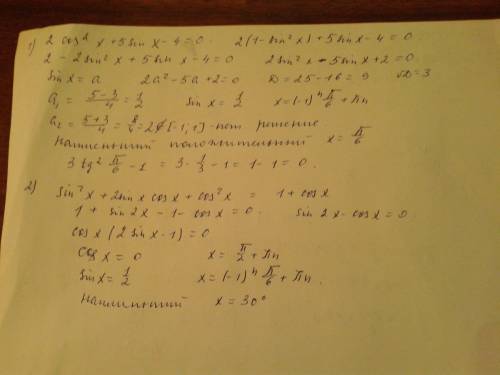 1) 2 cos² x + 5 sin x - 4 = 0. 2(1 - sin² x) + 5 sin x - 4 = 0.
2 - 2 sin² x + 5 sin x - 4 = 0 2 sin² x - 5 sin x + 2 = 0.
sin x = a 2a² - 5a + 2 = 0 D = 25 - 16 = 9 √D = 3
a₁ = (5-3)/4 = 1/2 sin x = 1/2 x = (-1)ⁿ π/6 + πn
a₂ = (5+3)/4 = 8/4 = 2 ∉ [-1; 1] - нет решение
наименьший положительный x = π/6
3 tg² π/6 - 1 = 3 · 1/3 - 1 = 1 - 1 = 0.
2) sin² x + 2 sin x cos x + cos² x = 1 + cos x
1 + sin 2x - 1 - cos x = 0. sin 2x - cos x = 0
cos x (2 sin x - 1) = 0
cos x = 0 x = π/2 + πn
sin x = 1/2 x = (-1)ⁿ π/6 + πn.
наименьший x = 30°